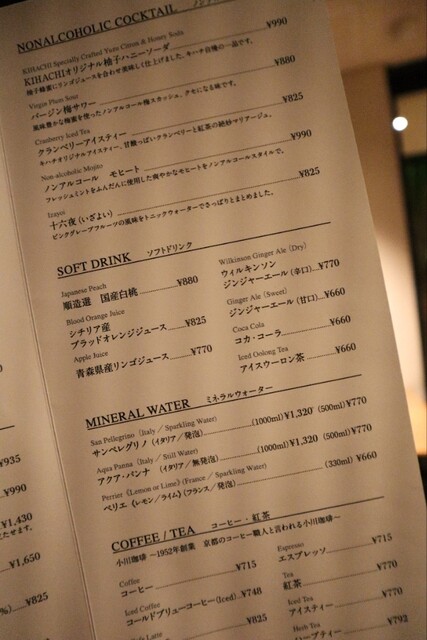 NONALCOHOLIC COCKTAIL
KIHACHI Specially Crafted Yuzu Citron & Honey Soda
KIHACHIオリジナル柚子ハニーソーダ ¥990
柚子蜂蜜にリンゴジュースを合わせ美味しく仕上げました。キハチ自慢の一品です。
Virgin Plum Sour
バージン梅サワー ¥880
風味豊かな蜂蜜を使ったノンアルコール梅スカッシュ。クセになる味です。
Cranberry Iced Tea
クランベリーアイスティー ¥825
キハチオリジナルアイスティー。甘酸っぱいクランベリーと紅茶の絶妙マリアージュ。
Non-alcoholic Mojito
ノンアルコール モヒート ¥990
フレッシュミントをふんだんに使用した爽やかなモヒートをノンアルコールスタイルで。
Izayoi
十六夜(いざよい) ¥825
ピンクグレープフルーツの風味をトニックウォーターでさっぱりとまとめました。
SOFT DRINK ソフトドリンク
Japanese Peach
順造選 国産白桃 ¥880
Blood Orange Juice
シチリア産
ブラッドオレンジジュース ¥825
Apple Juice
青森県産リンゴジュース ¥770
Wilkinson Ginger Ale (Dry)
ウィルキンソン
ジンジャーエール(辛口) ¥770
Ginger Ale (Sweet)
ジンジャーエール(甘口) ¥660
Coca Cola
コカ・コーラ ¥660
Iced Oolong Tea
アイスウーロン茶 ¥660
MINERAL WATER ミネラルウォーター
San Pellegrino (Italy / Sparkling Water)
サンペレグリノ (イタリア/発泡) (1000ml) ¥1,320 (500ml) ¥770
Aqua Panna (Italy / Still Water)
アクア・パンナ (イタリア/無発泡) (1000ml) ¥1,320 (500ml) ¥770
Perrier《Lemon or Lime》(France / Sparkling Water)
ペリエ《レモン/ライム》(フランス/発泡) (330ml) ¥660
COFFEE / TEA コーヒー・紅茶
小川珈琲 〜1952年創業 京都のコーヒー職人と言われる小川珈琲〜
Coffee
コーヒー ¥715
Iced Coffee
コールドブリューコーヒー(Iced) ¥748
Latte
¥825
Espresso
エスプレッソ ¥715
Tea
紅茶 ¥770
Iced Tea
アイスティー ¥770
Herb Tea
ハーブティー ¥792
¥935
¥990
¥1,430
¥1,650
¥825